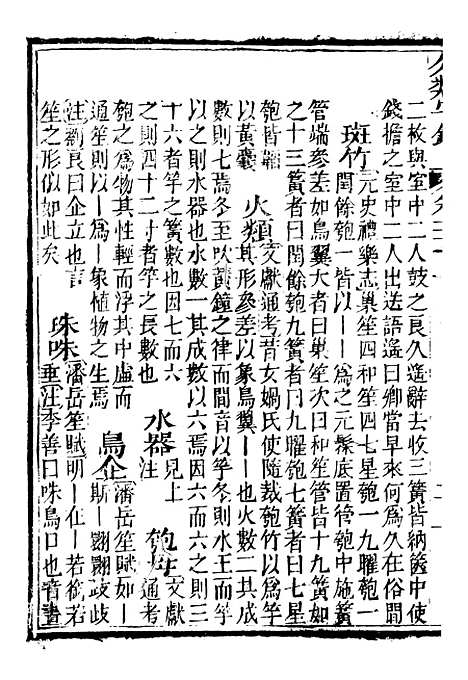 二枚與室中二人鼓之良久遙辭去收三簧皆納篋中使
錢擔之室中二人出送語遙曰卿當早來何爲久在俗間
斑竹元史禮樂志巢笙四和笙四七星匏一九曜匏一
閏餘匏一皆以丨丨爲之元髹底置管匏中施簧
管端參差如鳥翼大者曰巢笙次曰和笙管皆十九簧如
之十三簧者曰閏餘匏九簧者曰九曜匏七簧者曰七星
匏皆韜
以黃囊火類文獻通考昔女媧氏使隨裁匏竹以爲竽
其形參差以象鳥翼丨丨也火數二其成
數則七焉冬至吹黃鐘之律而間音以竽冬則水王而竽
以之則水器也水數一其成數以六焉因六而六之則三
十六者竽之簧數也因七而六
之則四十二寸者竽之長數也水器見上
注匏生文獻
通考
匏之爲物其性輕而浮其中虛而
通笙則丨以爲丨象植物之生焉鳥企潘岳笙賦如丨
斯丨翾翾歧歧
注劉良曰企立也言
笙之形似此矣珠咮潘岳笙賦明丨在丨若銜若
垂注李善曰咮鳥口也音晝